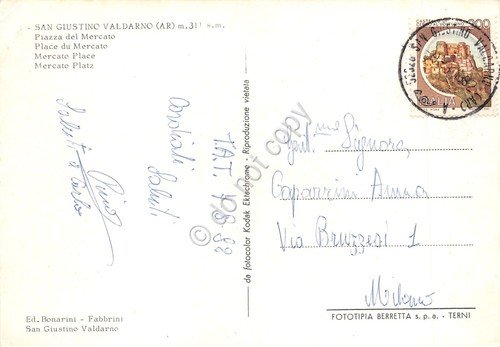 - SAN GIUSTINO VALDARNO (AR) m. 31 s.m.
Piazza del Mercato
Place du Mercato
Mercato Place
Mercato Platz
300
52020 SAN GIUSTINO VALDARNO (AR)
ITALIA
Cordiali Saluti
Saluti
Carlo
da fotocolor Kodak Ektachrome - Riproduzione vietata
© do not copy
Gent.ma Signora,
Caparrini Anna
Via Bruzzesi 1
Milano
Ed. Bonarini - Fabbrini
San Giustino Valdarno
FOTOTIPIA BERRETTA s.p.a. - TERNI